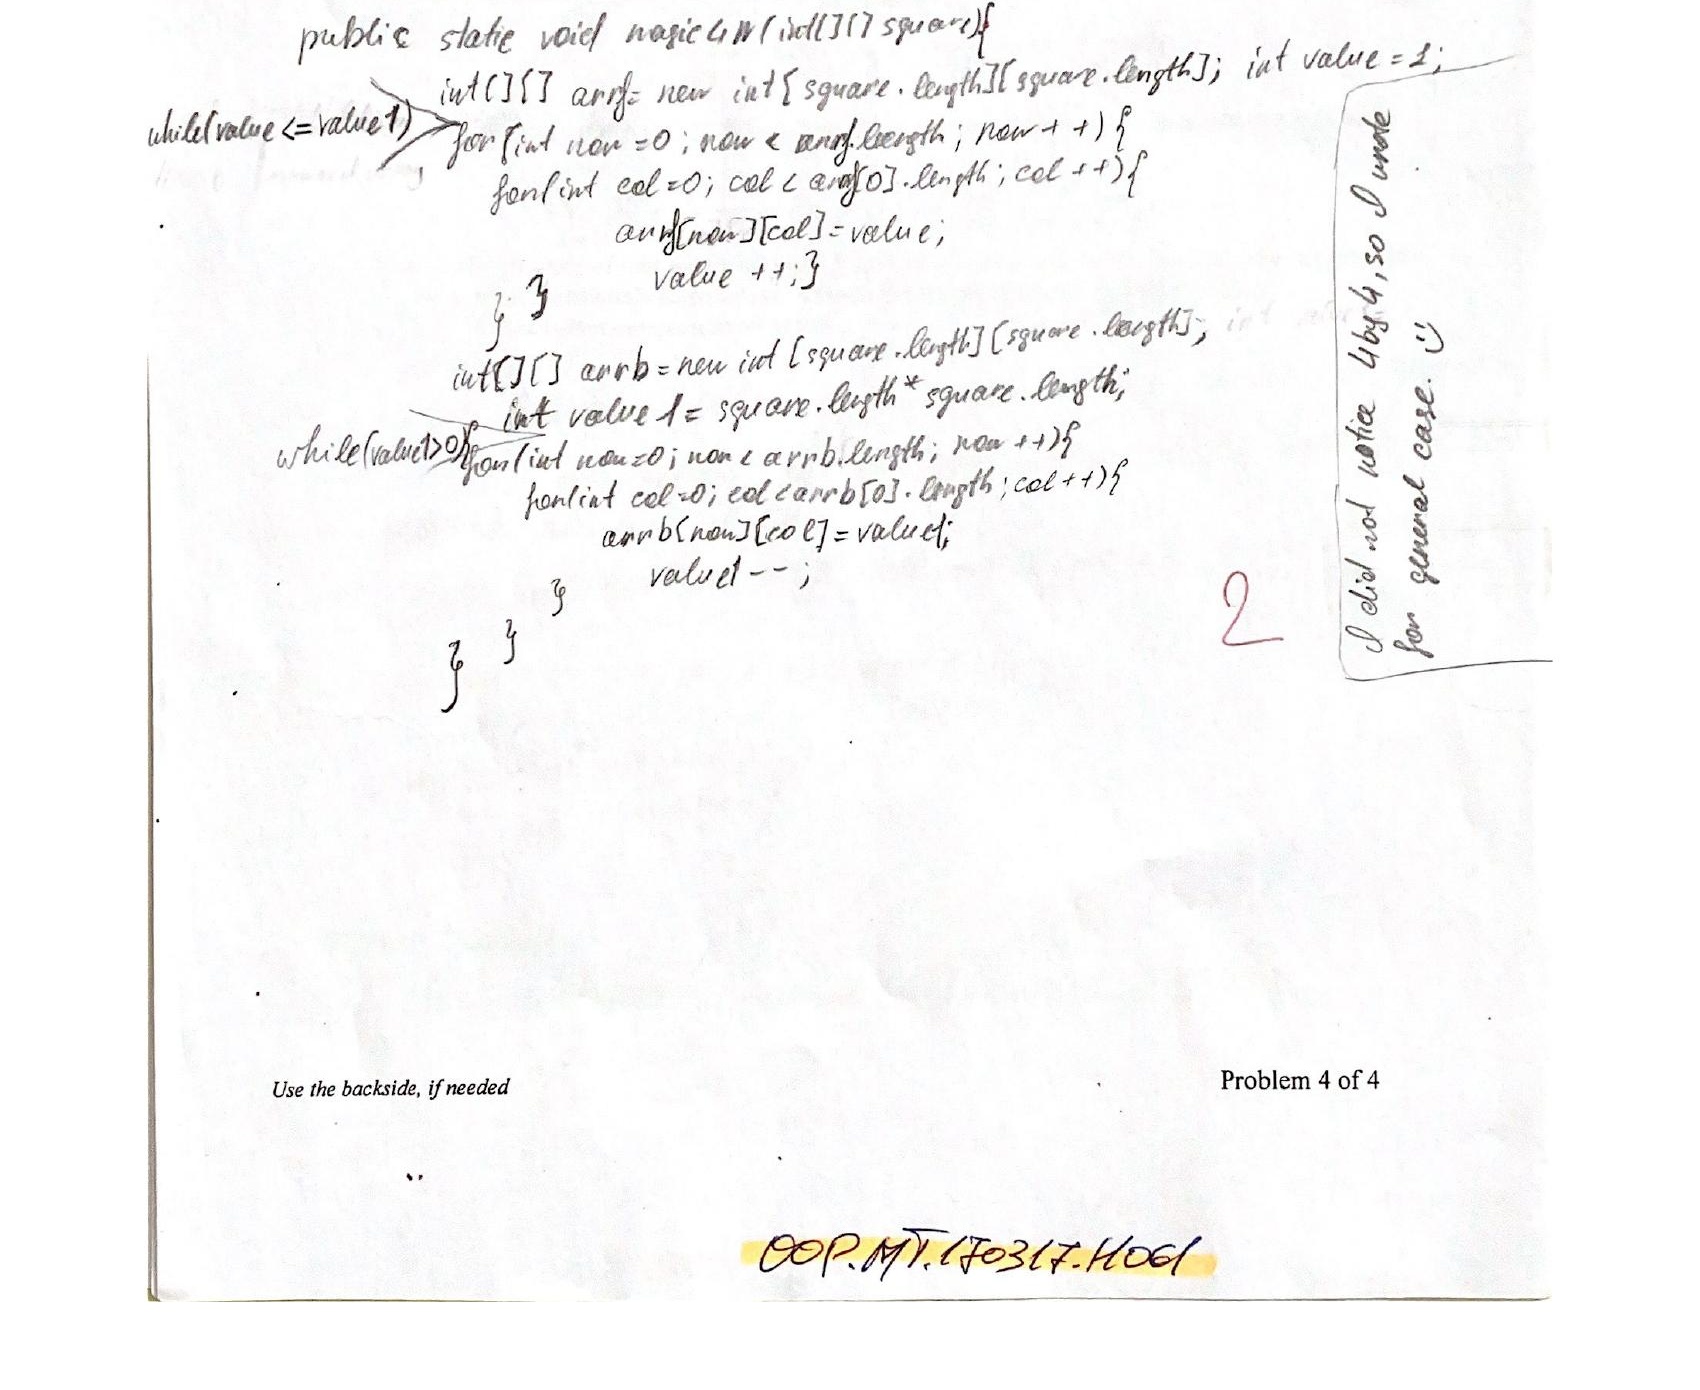 public static void magic4N(int[][] square){
int[][] arrf= new int[square.length][square.length]; int value = 1;
while(value <= value1)
for(int row = 0; row < arrf.length; row++){
for(int col = 0; col < arrf[0].length; col ++){
arrf[row][col] = value;
value ++;}
} }
int[][] arrb = new int [square.length][square.length];
int value1 = square.length * square.length;
while(value1>0){
for(int row=0; row < arrb.length; row ++){
for(int col=0; col<arrb[0].length; col++){
arrb[row][col] = value1;
value1--;
}
}
}
2
I did not notice 4by4, so I wrote
for general case. :)
Use the backside, if needed
Problem 4 of 4
OOP.MT.170317.H06d